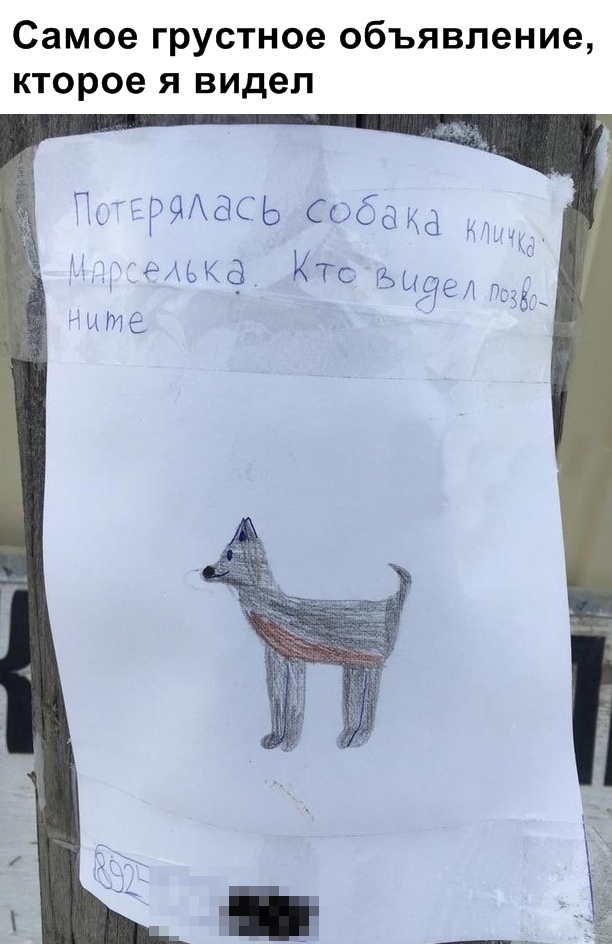 Самое грустное объявление,
кторое я видел
Потерялась собака кличка
Марселька. Кто видел позво-
ните
892-